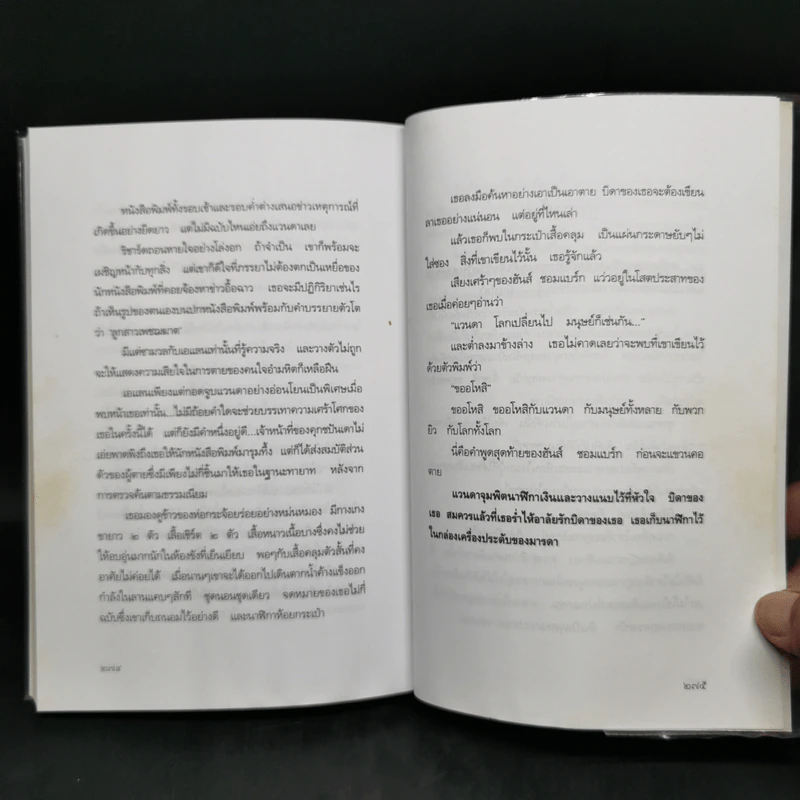 หนังสือพิมพ์ทั้งรอบเช้าและรอบค่ำต่างเสนอข่าวเหตุการณ์ที่
เกิดขึ้นอย่างยืดยาว แต่ไม่มีฉบับไหนเอ่ยถึงแวนดาเลย
ริชาร์ดถอนหายใจอย่างโล่งอก ถ้าจำเป็น เขาก็พร้อมจะ
เผชิญหน้ากับทุกสิ่ง แต่เขาก็ดีใจที่ภรรยาไม่ต้องตกเป็นเหยื่อของ
นักหนังสือพิมพ์ที่คอยจ้องหาข่าวอื้อฉาว เธอจะมีปฏิกิริยาเช่นไร
ถ้าเห็นรูปของตนเองบนปกหนังสือพิมพ์พร้อมกับคำบรรยายตัวโต
ว่า 'ลูกสาวเพชฌฆาต'
มีแต่ซามวลกับเอแลนเท่านั้นที่รู้ความจริง และวางตัวไม่ถูก
จะให้แสดงความเสียใจในการตายของคนใจอำมหิตก็เหลือฝืน
เอแลนเพียงแต่กอดจูบแวนดาอย่างอ่อนโยนเป็นพิเศษเมื่อ
พบหน้าเธอเท่านั้น...ไม่มีถ้อยคำใดจะช่วยบรรเทาความเศร้าโศกของ
เธอในครั้งนี้ได้ แต่ก็ยังมีคำหนึ่งอยู่ดี...เจ้าหน้าที่ของคุกชปันเดาไม่
เอ่ยพาดพิงถึงเธอให้นักหนังสือพิมพ์มารุมทึ้ง แต่ก็ได้ส่งสมบัติส่วน
ตัวของผู้ตายซึ่งมีเพียงไม่กี่ชิ้นมาให้เธอในฐานะทายาท หลังจาก
การตรวจค้นตามธรรมเนียม
เธอมองดูข้าวของห่อกระจ้อยร่อยอย่างหม่นหมอง มีกางเกง
ขายาว ๒ ตัว เสื้อเชิ้ต ๒ ตัว เสื้อหนาวเนื้อบางซึ่งคงไม่ช่วย
ให้อบอุ่นมากนักในห้องขังที่เย็นเยียบ พอๆกับเสื้อคลุมตัวสั้นที่คง
อาศัยไม่ค่อยได้ เมื่อนานๆเขาจะได้ออกไปเดินตากน้ำค้างแข็งออก
กำลังในลานแคบๆสักที ชุดนอนชุดเดียว จดหมายของเธอไม่กี่
ฉบับซึ่งเขาเก็บถนอมไว้อย่างดี และนาฬิกาห้อยกระเป๋า
เธอลงมือค้นหาอย่างเอาเป็นเอาตาย บิดาของเธอจะต้องเขียน
ลาเธออย่างแน่นอน แต่อยู่ที่ไหนเล่า
แล้วเธอก็พบในกระเป๋าเสื้อคลุม เป็นแผ่นกระดาษยับๆไม่
ใส่ซอง สิ่งที่เขาเขียนไว้นั้น เธอรู้จักแล้ว
เสียงเศร้าๆของฮันส์ ชอมแบร์ก แว่วอยู่ในโสตประสาทของ
เธอเมื่อค่อยๆอ่านว่า
"แวนดา โลกเปลี่ยนไป มนุษย์ก็เช่นกัน..."
และต่ำลงมาข้างล่าง เธอไม่คาดเลยว่าจะพบที่เขาเขียนไว้
ด้วยตัวพิมพ์ว่า
"ขออโหสิ"
ขออโหสิ ขออโหสิกับแวนดา กับมนุษย์ทั้งหลาย กับพวก
ยิว กับโลกทั้งโลก
นี่คือคำพูดสุดท้ายของฮันส์ ชอมแบร์ก ก่อนจะแขวนคอ
ตาย
แวนดาจุมพิตนาฬิกาเงินและวางแนบไว้ที่หัวใจ บิดาของ
เธอ สมควรแล้วที่เธอร่ำไห้อาลัยรักบิดาของเธอ เธอเก็บนาฬิกาไว้
ในกล่องเครื่องประดับของมารดา